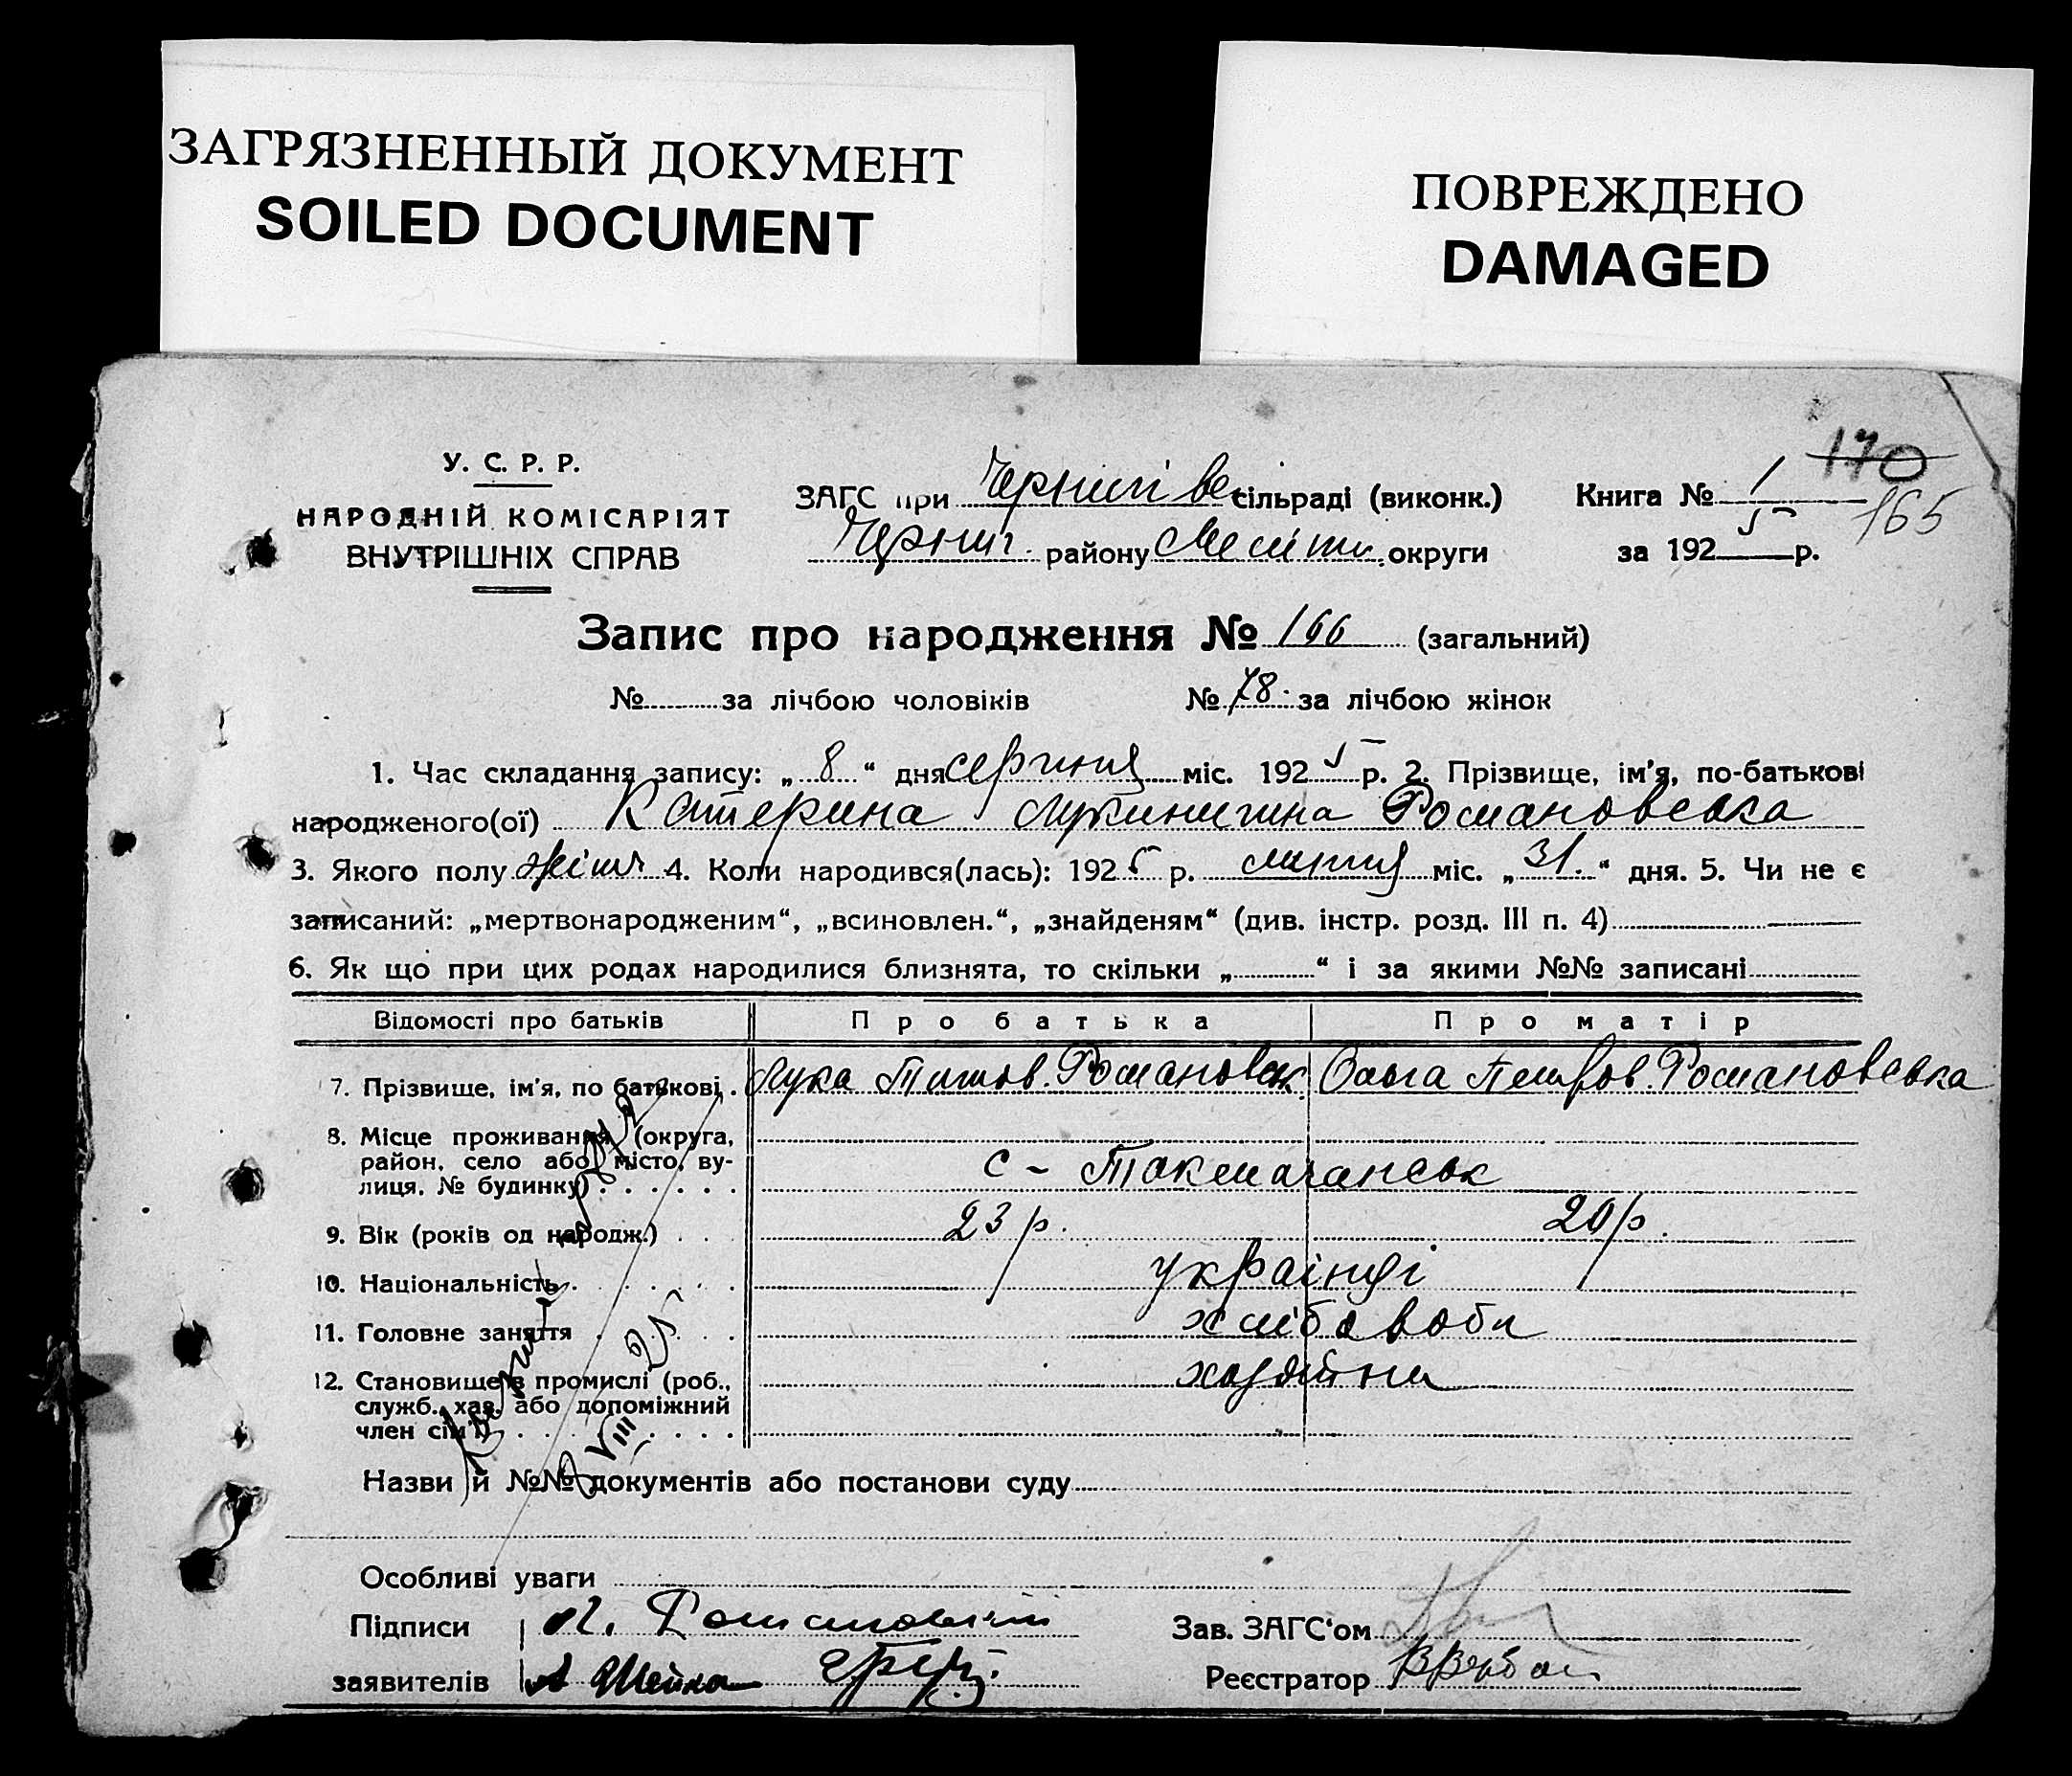 ЗАГРЯЗНЕННЫЙ ДОКУМЕНТ
SOILED DOCUMENT
ПОВРЕЖДЕНО
DAMAGED
У. С. Р. Р.
НАРОДНІЙ КОМІСАРІЯТ
ВНУТРІШНІХ СПРАВ
ЗАГС при Чернигівс сільраді (виконк.)
Черниг. району Меліт. округи
Книга № 1 170
165
за 1925 р.
Запис про народження № 166 (загальний)
№ за лічбою чоловіків № 78. за лічбою жінок
1. Час складання запису: „ 8 “ дня серпня міс. 1925 р. 2. Прізвище, ім'я, по-батькові
народженого(ої) Катерина Лукинична Романовська
3. Якого полу жіноч 4. Коли народився(лась): 1925 р. липня міс. „ 31. “ дня. 5. Чи не є
записаний: „мертвонародженим“, „всиновлен.“, „знайденям“ (див. інстр. розд. III п. 4)
6. Як що при цих родах народилися близнята, то скільки „ “ і за якими №№ записані
Відомості про батьків Про батька Про матір
7. Прізвище, ім'я, по батькові. Лука Титов. Романовськ. Ольга Петров. Романовська
8. Місце проживання (округа,
район, село або місто, ву-
лиця, № будинку) с - Токмачанськ
9. Вік (років од народж.) 23 р. 20 р.
10. Національність українці
11. Головне заняття хлібовоби
12. Становище в промислі (роб.,
служб., хаз. або допоміжний
член сім'ї) хазяїни
VIII 25
Назви й №№ документів або постанови суду
Особливі уваги
Підписи Л. Романовский
заявителів А Шейко
Зав. ЗАГС'ом
Реєстратор